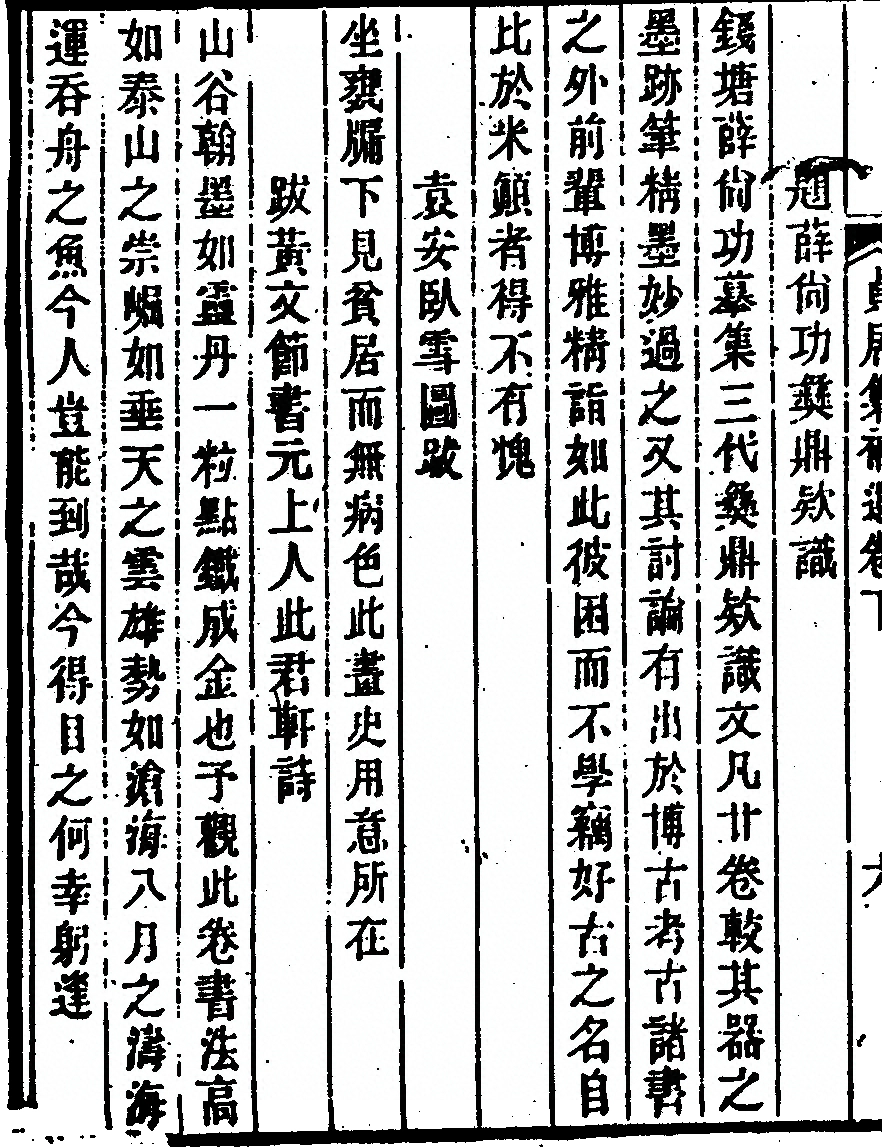 貞居集補遺卷下
題薛尙功彝鼎欵識
錢塘薛尙功摹集三代彝鼎欵識文凡廿卷較其器之
墨跡筆精墨妙過之又其討論有出於博古考古諸書
之外前輩博雅精詣如此彼困而不學竊好古之名自
比於米顚者得不有愧
袁安臥雪圖跋
坐甕牖下見貧居而無病色此畫史用意所在
跋黃文節書元上人此君軒詩
山谷翰墨如靈丹一粒點鐵成金也予觀此卷書法高
如泰山之崇崛如垂天之雲雄勢如滄海八月之濤海
運吞舟之魚今人豈能到哉今得目之何幸躬逢